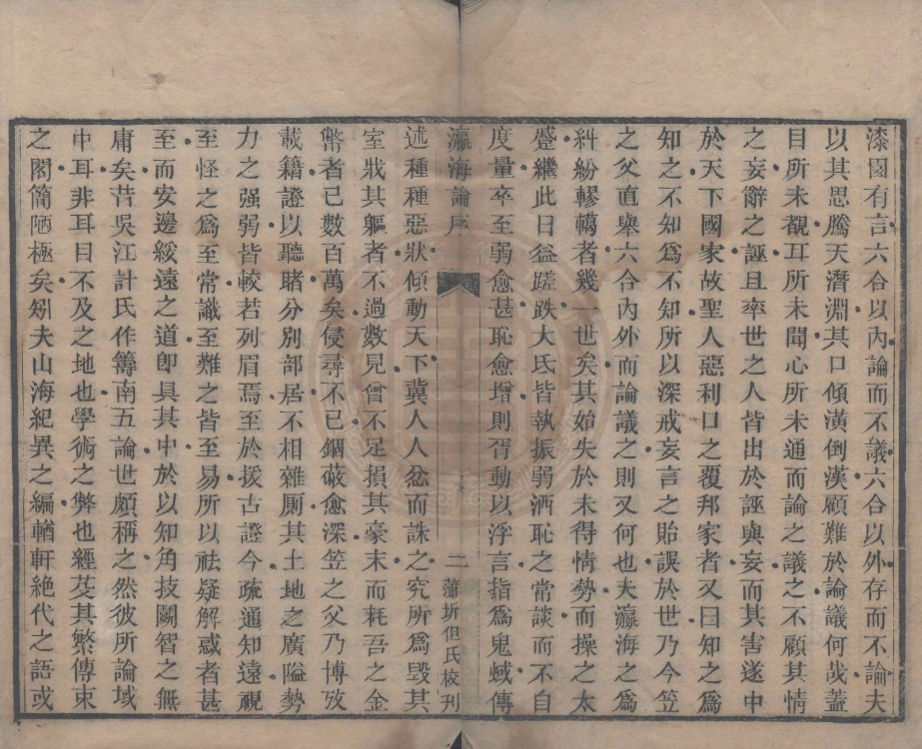 漆園有言六合以內論而不議六合以外存而不論夫
以其思騰天潛淵其口傾潢倒漢顧難於論議何哉蓋
目所未覩耳所未聞心所未通而論之議之不顧其情
之妄辭之誣且率世之人皆出於誣與妄而其害遂中
於天下國家故聖人惡利口之覆邦家者又曰知之爲
知之不知爲不知所以深戒妄言之貽誤於世乃今笠
之父直舉六合內外而論議之則又何也夫瀛海之爲
糾紛轇轕者幾一世矣其始失於未得情勢而操之太
蹙繼此日益蹉跌大氐皆執振弱洒恥之常談而不自
度量卒至弱愈甚恥愈增則胥動以浮言指爲鬼蜮傳
瀛海論序
二
蒲圻但氏校刊
述種種惡狀傾動天下冀人人忿而誅之究所爲毀其
室戕其軀者不過數見曾不足損其豪末而耗吾之金
幣者已數百萬矣侵尋不已錮蔽愈深笠之父乃博攷
載籍證以聽睹分別部居不相雜厠其土地之廣隘勢
力之强弱皆較若列眉焉至於援古證今疏通知遠視
至怪之爲至常識至難之皆至易所以袪疑解惑者甚
至而安邊綏遠之道卽具其中於以知角技鬭智之無
庸矣昔吳江計氏作籌南五論世頗稱之然彼所論域
中耳非耳目不及之地也學術之弊也經芟其繁傳束
之閣簡陋極矣矧夫山海紀異之編輶軒絶代之語或